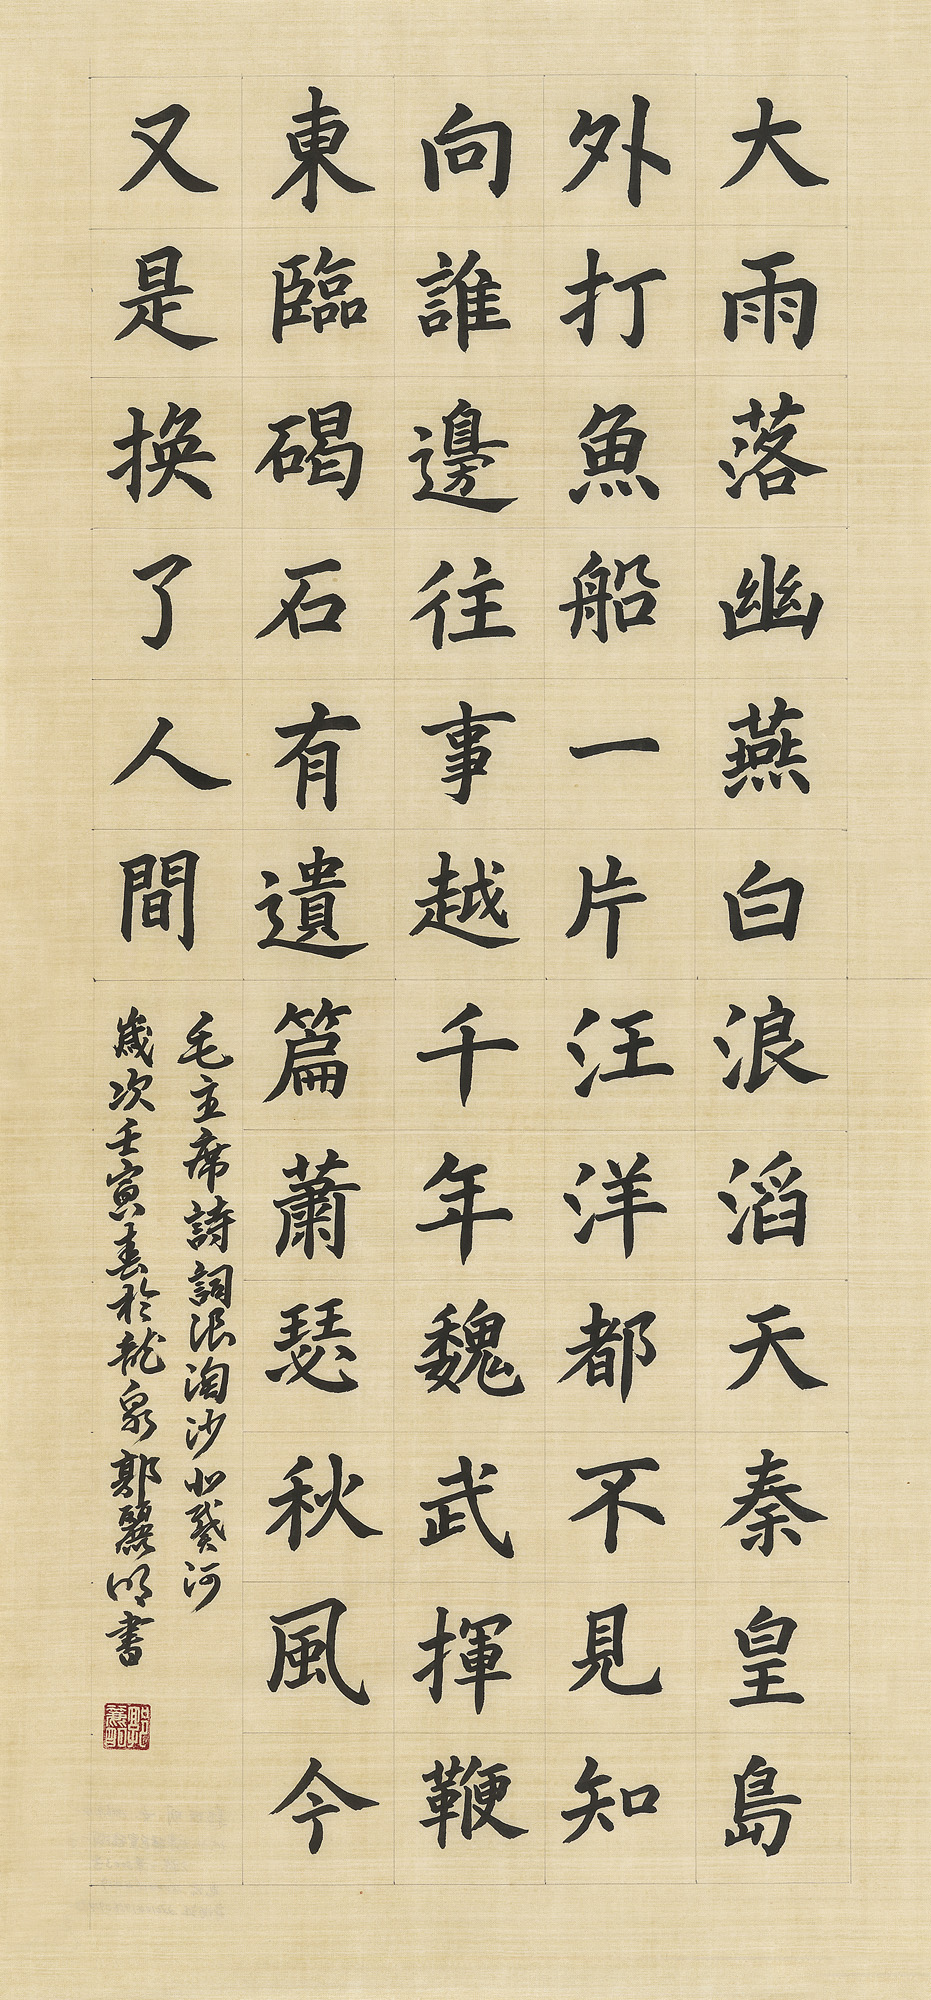 大雨落幽燕白浪滔天秦皇島
外打魚船一片汪洋都不見知
向誰邊往事越千年魏武揮鞭
東臨碣石有遺篇蕭瑟秋風今
又是换了人間
毛主席詩詞浪淘沙北戴河
歲次壬寅春於龍泉郭麗明書